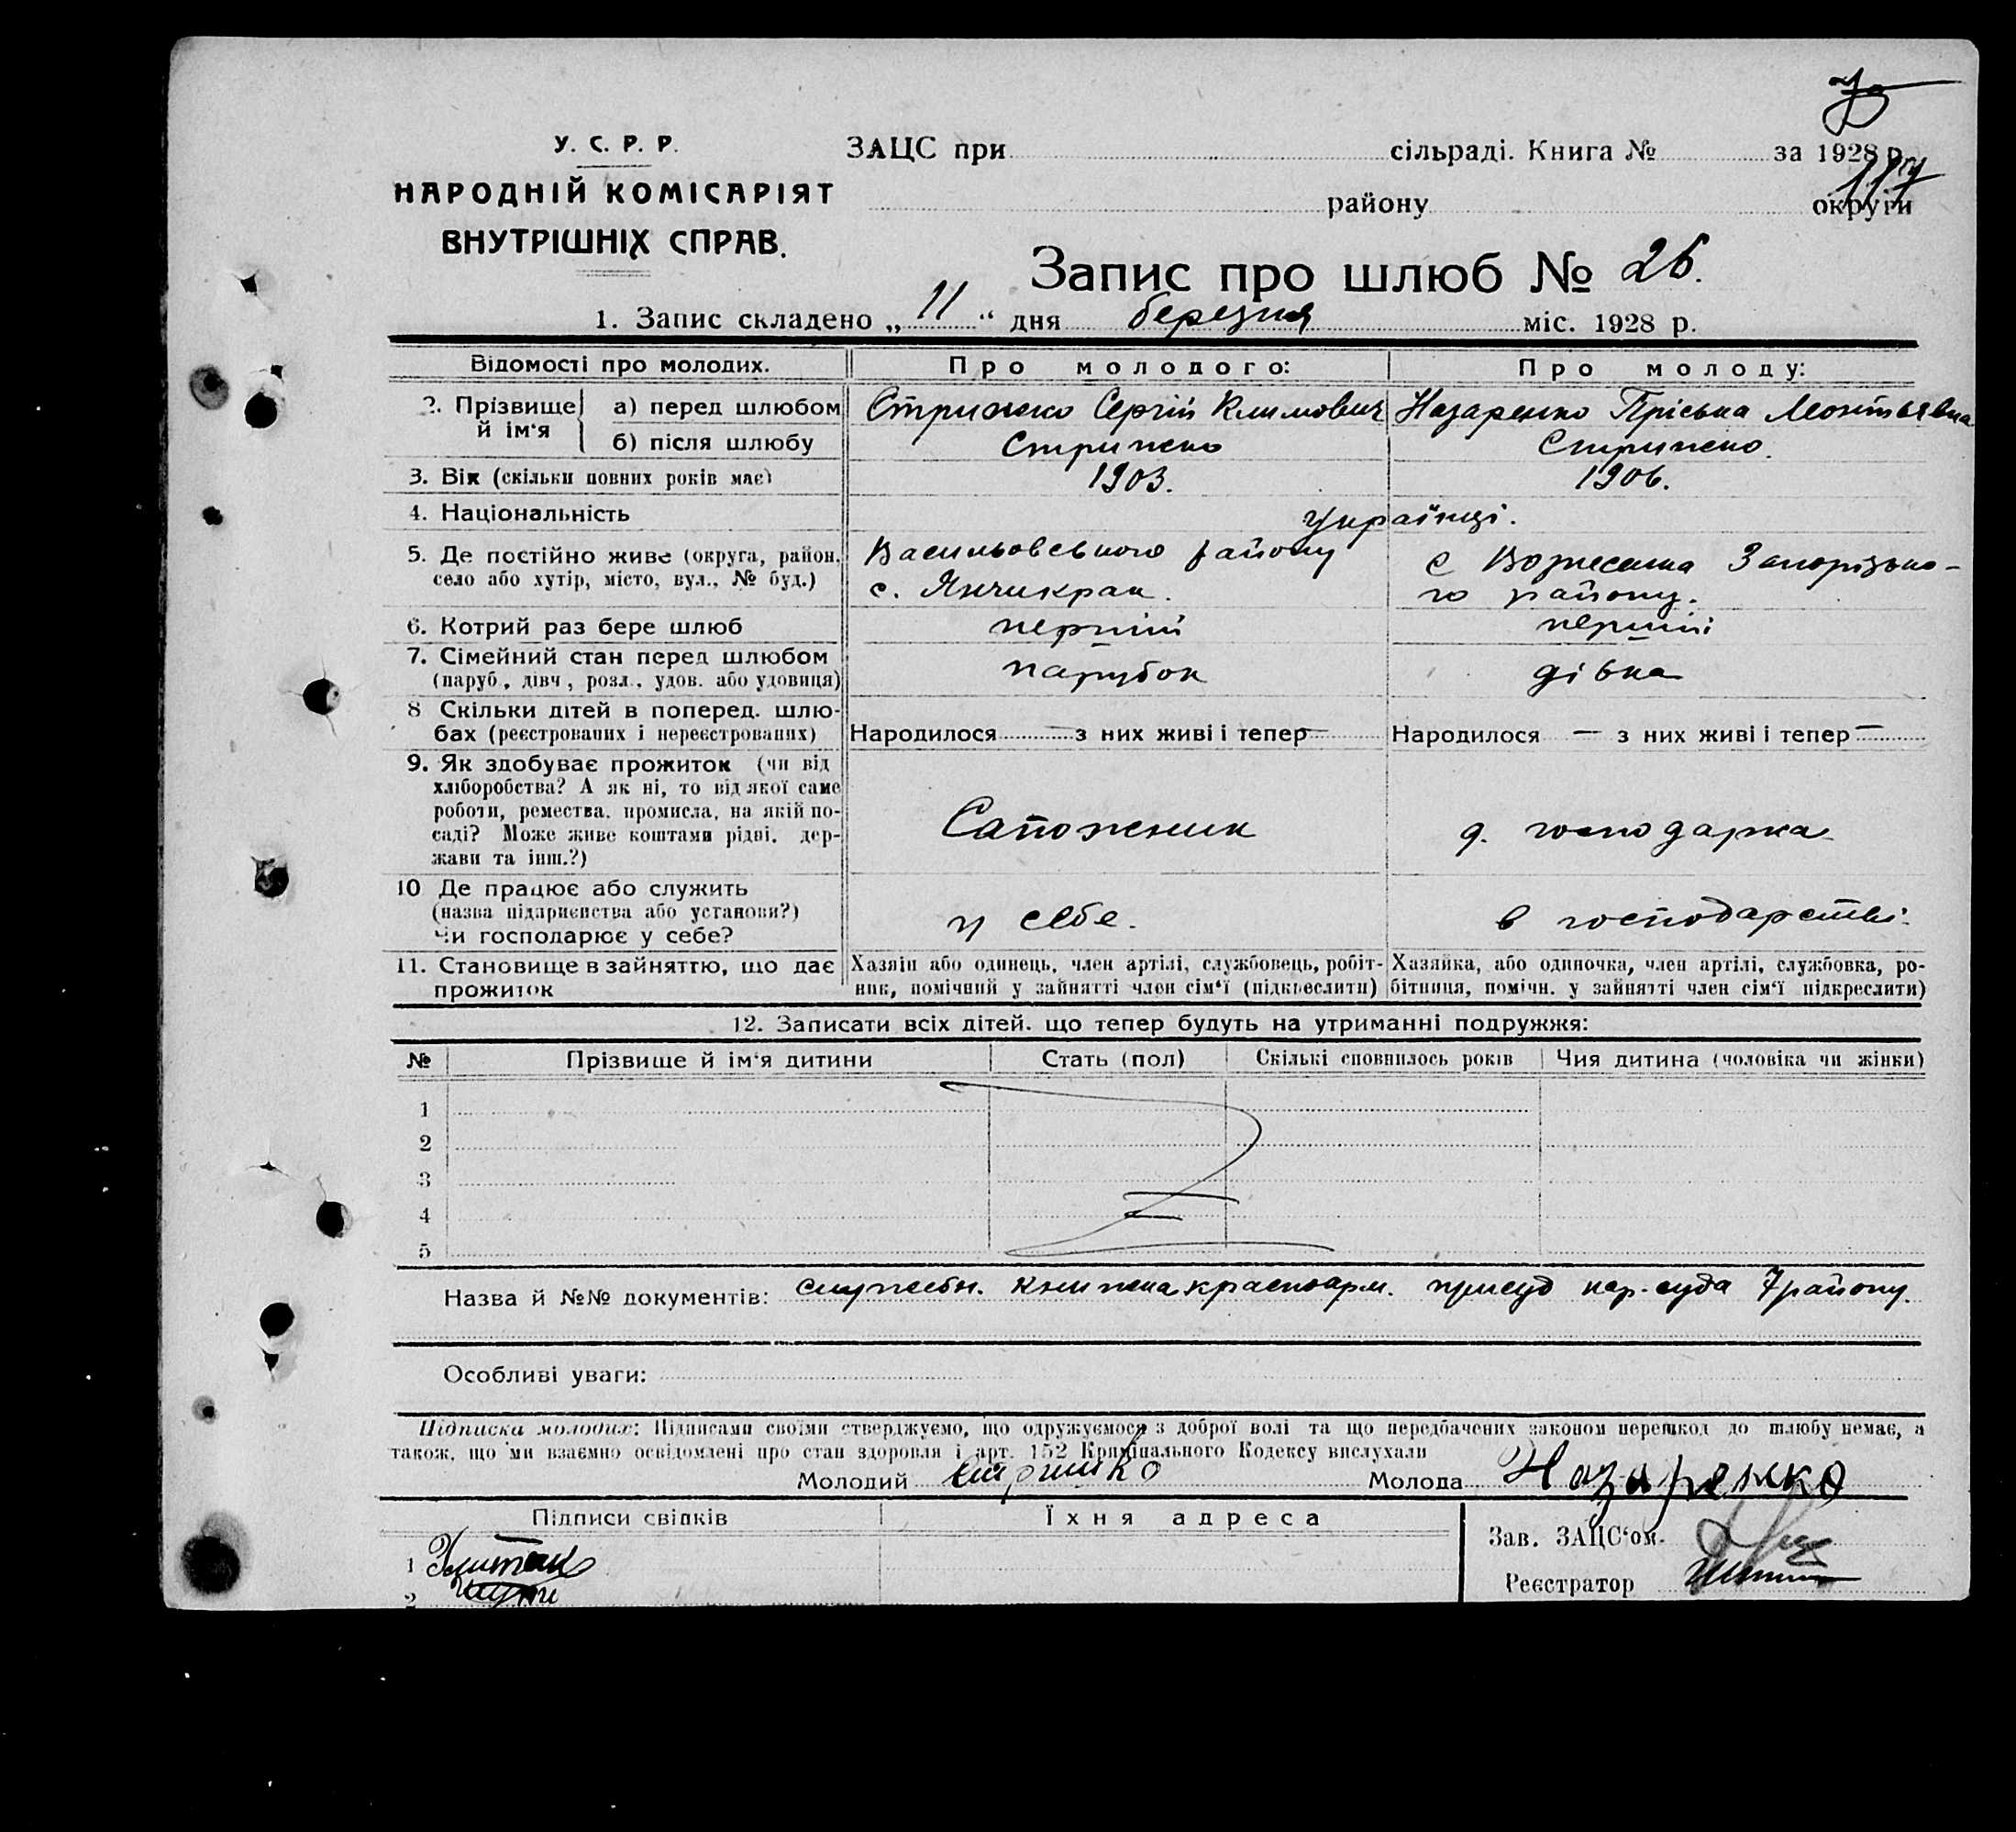 У. С. Р. Р.
НАРОДНІЙ КОМІСАРІЯТ
ВНУТРІШНІХ СПРАВ.
ЗАЦС при сільраді. Книга № за 1928 р.
району округи
Запис про шлюб № 26.
1. Запис складено „ 11 “ дня березня міс. 1928 р.
Відомості про молодих. Про молодого: Про молоду:
2. Прізвище й ім‘я
а) перед шлюбом Стрижко Сергій Климович Назаренко Пріська Леонтьевна
б) після шлюбу Стрижено Стрижено.
3. Вік (скільки повних років має) 1903. 1906.
4. Національність Українці.
5. Де постійно живе (округа, район, Васильовського району с Вознесенка Запорізько-
село або хутір, місто, вул., № буд.) с. Янчикрак. го району.
6. Котрий раз бере шлюб перший перший
7. Сімейний стан перед шлюбом парубок дівка
(паруб., дівч, розл., удов. або удовиця)
8 Скільки дітей в поперед. шлю-
бах (реєстрованих і нереєстрованих) Народилося — з них живі і тепер — Народилося — з них живі і тепер —
9. Як здобуває прожиток (чи від
хліборобства? А як ні, то від якої саме
роботи, ремества, промисла, на якій по- Сапожник д. господарка
саді? Може живе коштами рідні, дер-
жави та інш.?)
10 Де працює або служить
(назва підприємства або установи?) у себе. в господарстві.
Чи господарює у себе?
11. Становище в зайняттю, що дає Хазяін або одинець, член артілі, службовець, робіт- Хазяйка, або одиночка, член артілі, службовка, ро-
прожиток ник, помічний у зайнятті член сім‘ї (підкреслити) бітниця, помічн. у зайнятті член сім‘ї підкреслити)
12. Записати всіх дітей. що тепер будуть на утриманні подружжя:
№ Прізвище й ім‘я дитини Стать (пол) Скількі сповнилось років Чия дитина (чоловіка чи жінки)
1
2
3
4
5
Назва й №№ документів: служебн. книжка красноарм. присуд нар. суда 7 району.
Особливі уваги:
Підписка молодих: Підписами своїми стверджуємо, що одружуємося з доброї волі та що передбачених законом перешкод до шлюбу немає, а
також, що ми взаємно освідомлені про стан здоровля і арт. 152 Кримінального Кодексу вислухали
Молодий Молода Назаренко
Підписи свідків Їхня адреса
Зав. ЗАЦС‘ом.
1
Реєстратор
2